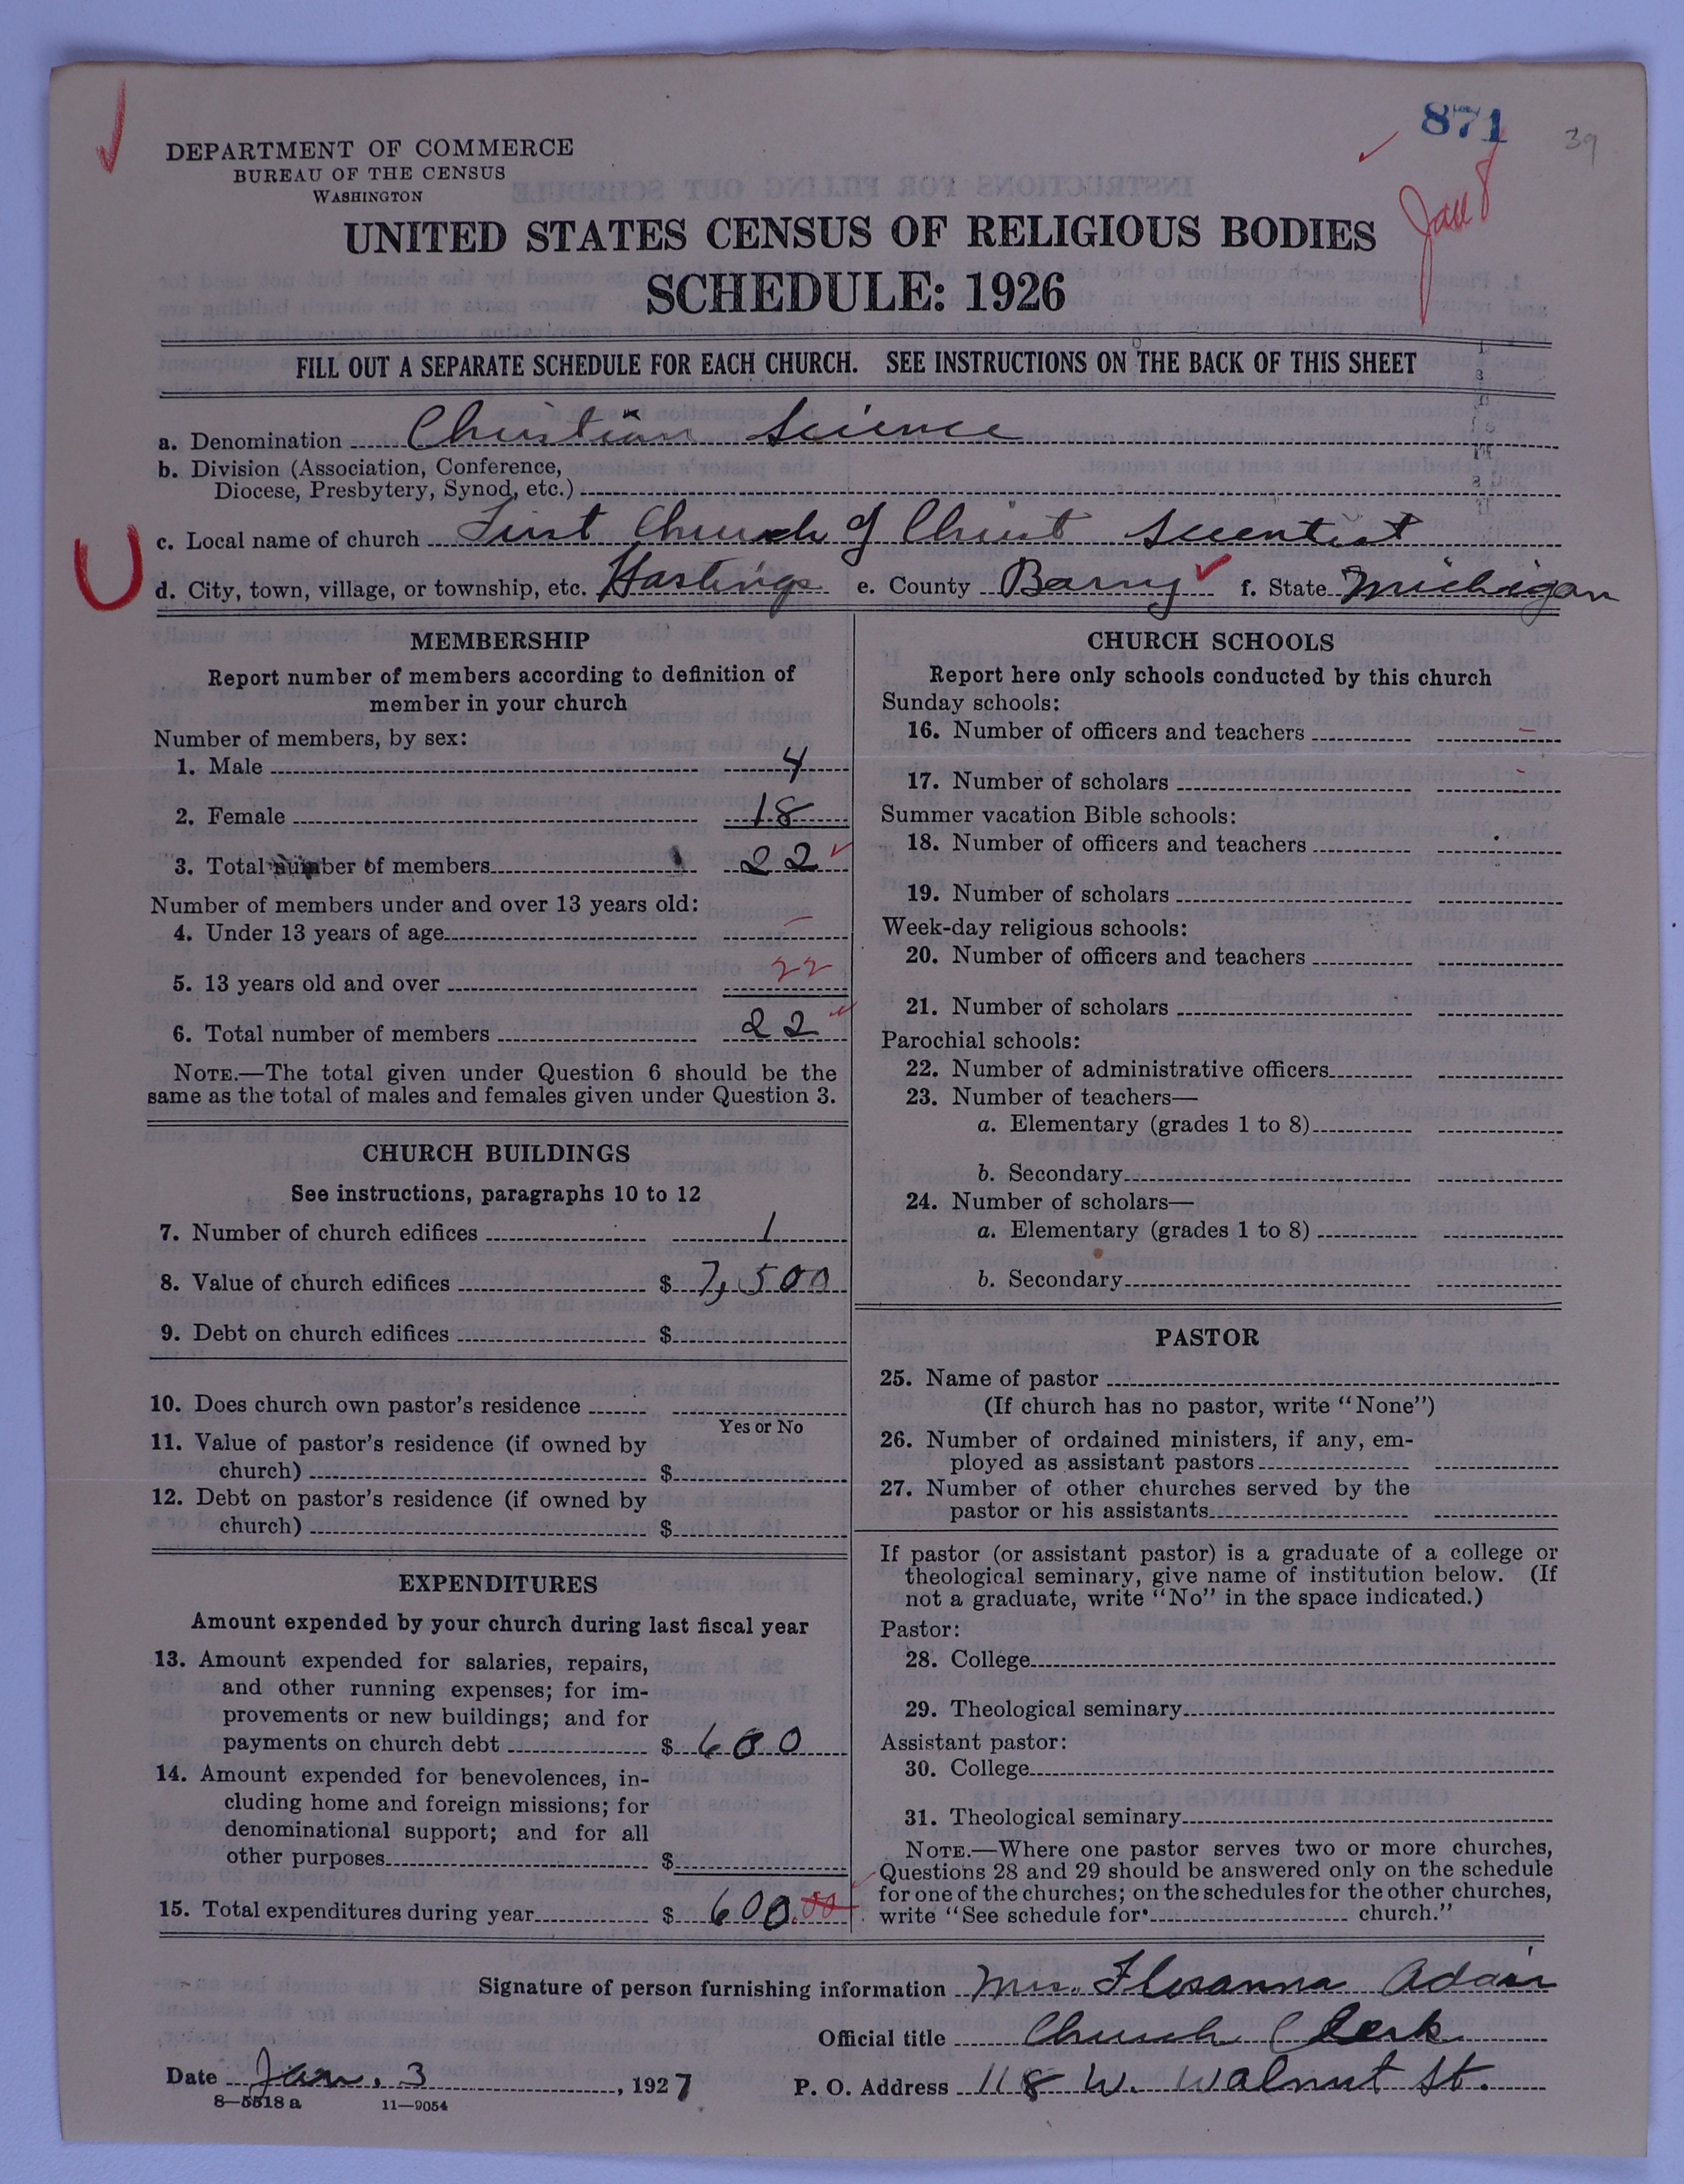 871
39
Jan 8
DEPARTMENT OF COMMERCE
BUREAU OF THE CENSUS
WASHINGTON
UNITED STATES CENSUS OF RELIGIOUS BODIES
SCHEDULE: 1926
FILL OUT A SEPARATE SCHEDULE FOR EACH CHURCH. SEE INSTRUCTIONS ON THE BACK OF THIS SHEET
a. Denomination Christian Science
b. Division (Association, Conference,
Diocese, Presbytery, Synod, etc.)
c. Local name of church First Church of Christ Scientist
d. City, town, village, or township, etc. Hastings e. County Barry f. State Michigan
MEMBERSHIP
Report number of members according to definition of
member in your church
Number of members, by sex:
1. Male 4
2. Female 18
3. Total number of members 22
Number of members under and over 13 years old:
4. Under 13 years of age –
5. 13 years old and over 22
6. Total number of members 22
NOTE.—The total given under Question 6 should be the
same as the total of males and females given under Question 3.
CHURCH BUILDINGS
See instructions, paragraphs 10 to 12
7. Number of church edifices 1
8. Value of church edifices $ 7,500
9. Debt on church edifices $
10. Does church own pastor's residence
Yes or No
11. Value of pastor's residence (if owned by
church) $
12. Debt on pastor's residence (if owned by
church) $
EXPENDITURES
Amount expended by your church during last fiscal year
13. Amount expended for salaries, repairs,
and other running expenses; for im-
provements or new buildings; and for
payments on church debt $ 600
14. Amount expended for benevolences, in-
cluding home and foreign missions; for
denominational support; and for all
other purposes $
15. Total expenditures during year $ 600.00
CHURCH SCHOOLS
Report here only schools conducted by this church
Sunday schools:
16. Number of officers and teachers –
17. Number of scholars –
Summer vacation Bible schools:
18. Number of officers and teachers
19. Number of scholars
Week-day religious schools:
20. Number of officers and teachers
21. Number of scholars
Parochial schools:
22. Number of administrative officers
23. Number of teachers—
a. Elementary (grades 1 to 8)
b. Secondary
24. Number of scholars—
a. Elementary (grades 1 to 8)
b. Secondary
PASTOR
25. Name of pastor
(If church has no pastor, write "None")
26. Number of ordained ministers, if any, em-
ployed as assistant pastors
27. Number of other churches served by the
pastor or his assistants
If pastor (or assistant pastor) is a graduate of a college or
theological seminary, give name of institution below. (If
not a graduate, write "No" in the space indicated.)
Pastor:
28. College
29. Theological seminary
Assistant pastor:
30. College
31. Theological seminary
NOTE.—Where one pastor serves two or more churches,
Questions 28 and 29 should be answered only on the schedule
for one of the churches; on the schedules for the other churches,
write "See schedule for church."
Signature of person furnishing information Mrs. Flosanna Adair
Official title Church Clerk
Date Jan. 3, 1927 P. O. Address 118 W. Walnut St.
8—5518 a 11—9054